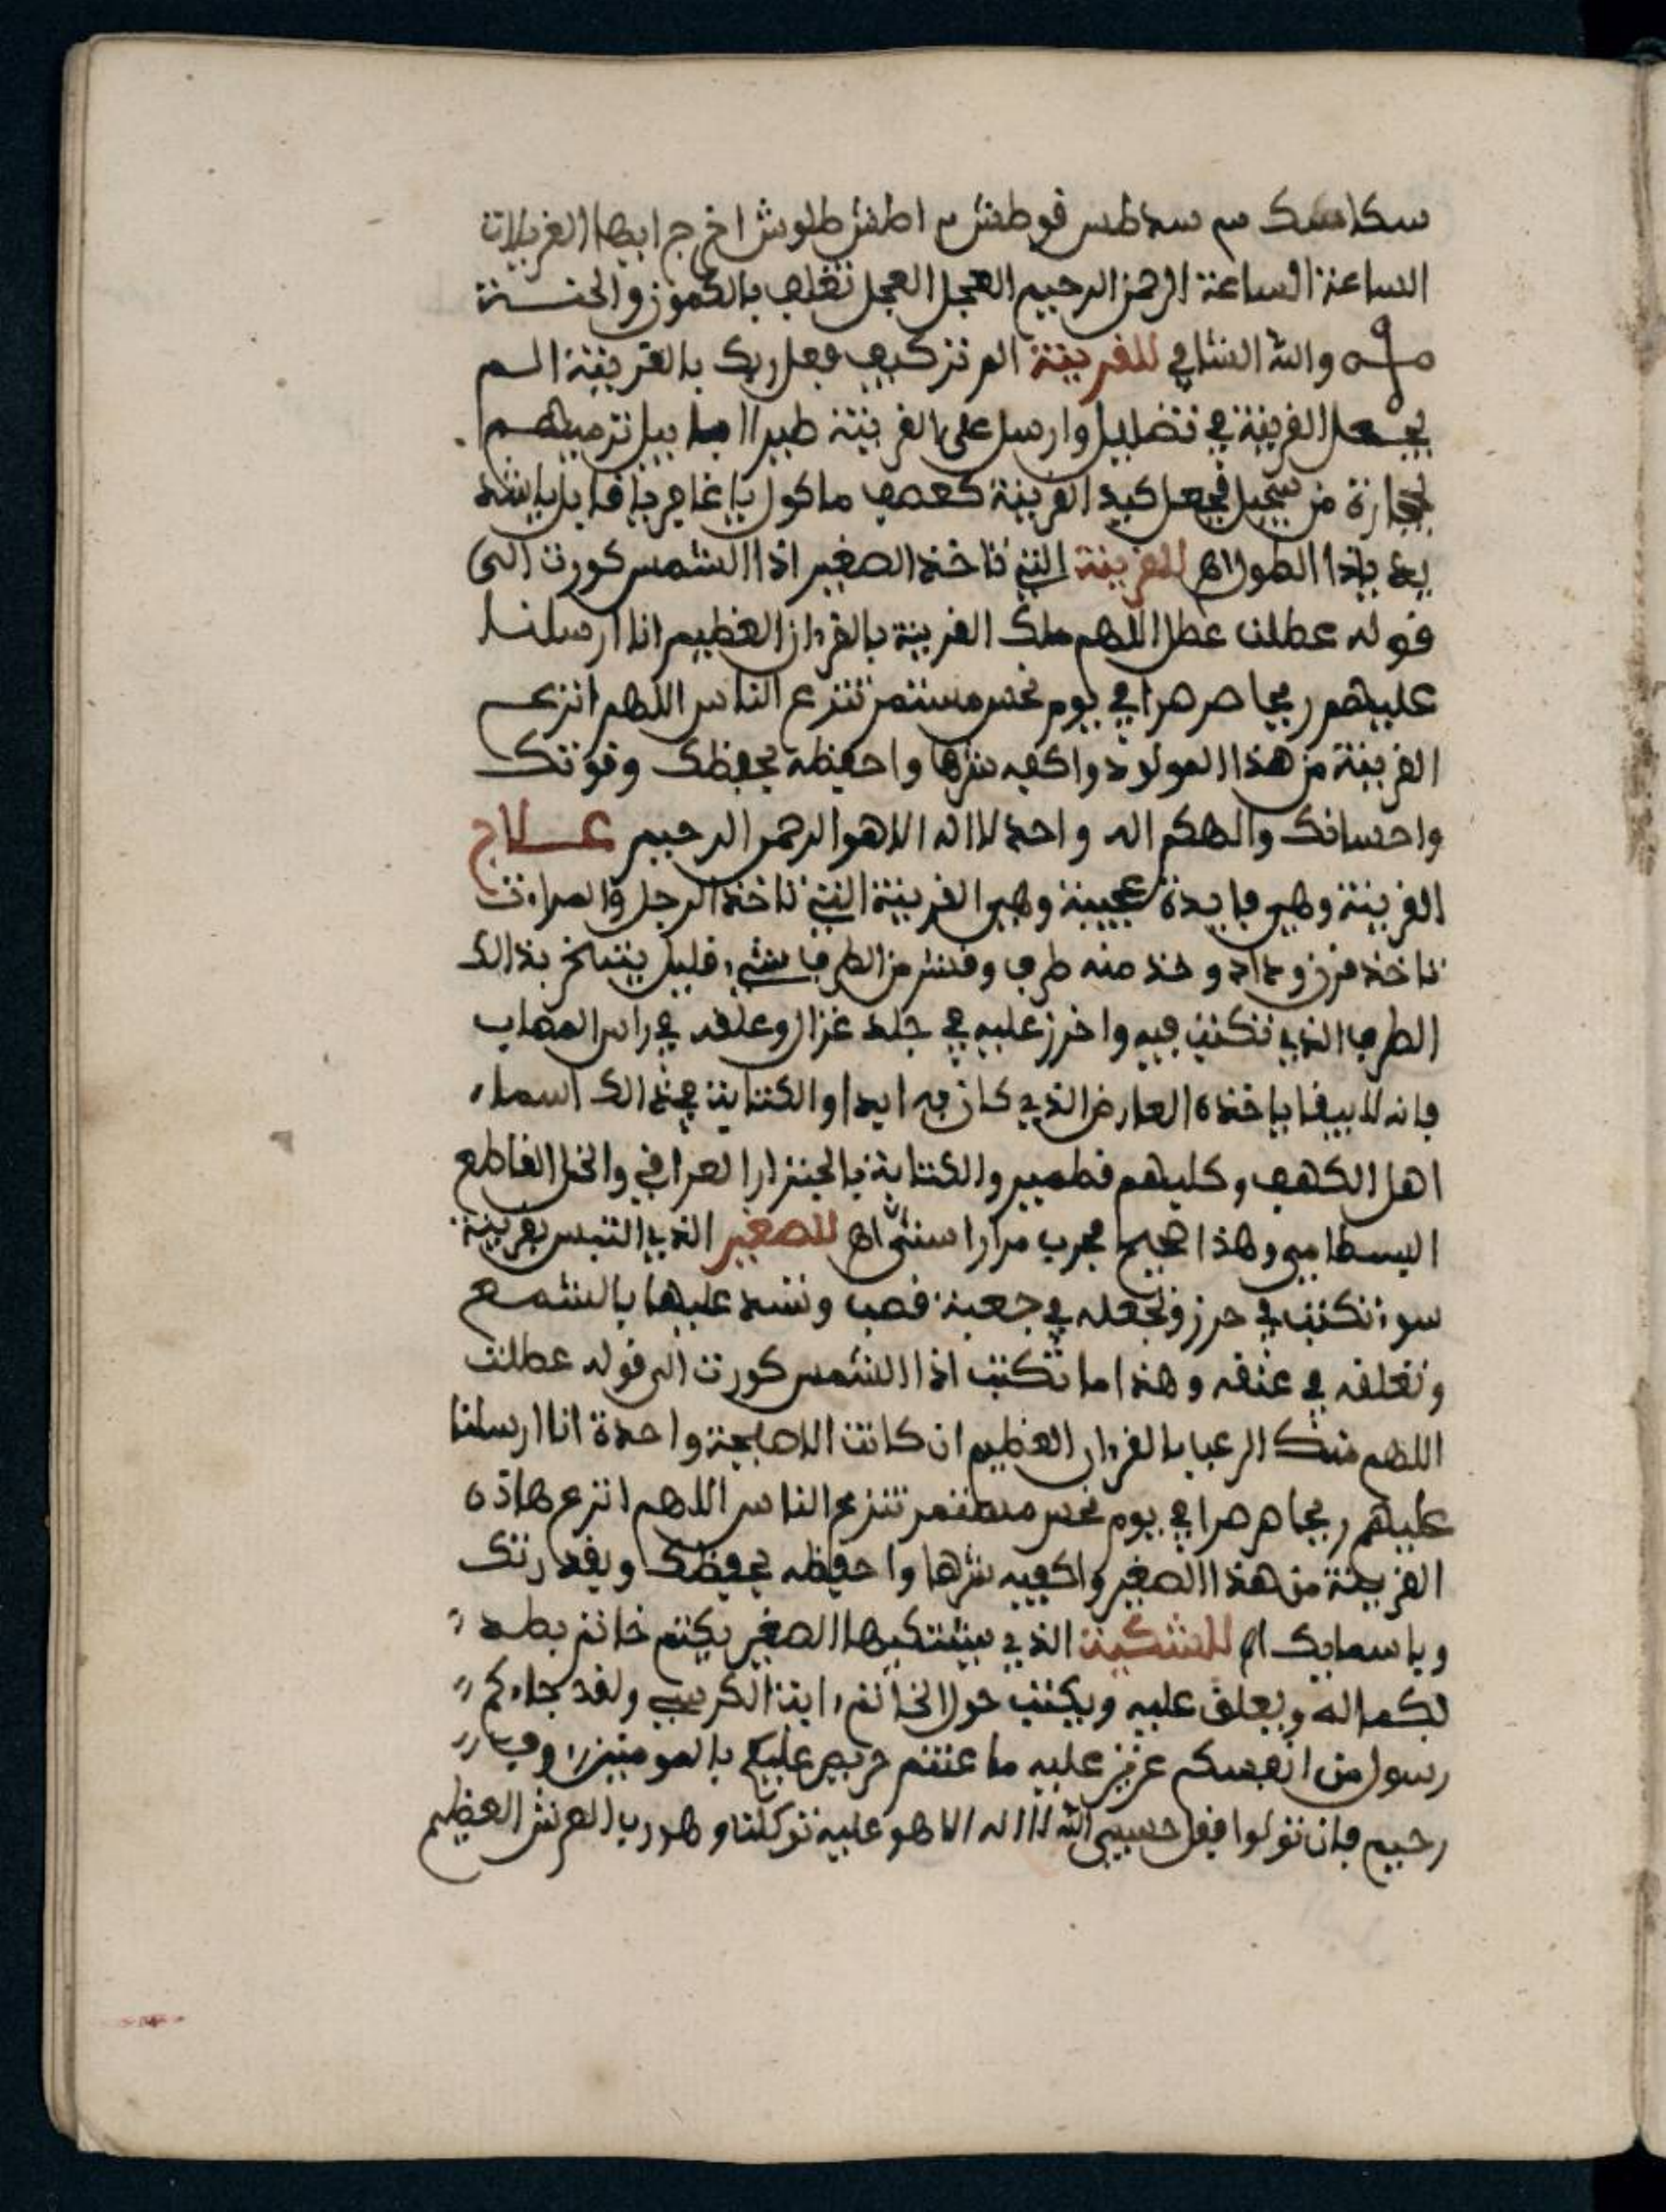 سكاسك سم سماطس قوطش م اطش طلوش اخرج ايها الغربلات
الساعة الساعة الرحمن الرحيم العجل العجل تغلب بالكمون والخنسة
والله الشافي للقرينة الم تر كيف فعل ربك بالقرينة الم
يجعل القرينة في تضليل وارسل على القرينة طيرا ابابيل ترميهم
بحجارة من سجيل فجعل كيد القرينة كعصف ماكول يا غافر يا قابل يا شد
يد ياذا الطول اه للقرينة التي تاخذ الصغير اذا الشمس كورت الى
قوله عطلت عطل اللهم ملك القرينة بالقرءان العظيم انا ارسلنا
عليهم ريحا صرصرا في يوم نحس مستمر تنزع الناس اللهم انزع
القرينة من هذا المولود واكفه شرها واحفظه بحفظك وقوتك
واحسانك والهكم اله واحد لا اله الا هو الرحمن الرحيم علاج
القرينة وهي فايدة عجيبة وهي القرينة التي تاخذ الرجل والمراءت
تاخذ قرن وعل وخذ منه طرف وقشر من الطرف شيء قليل يتبخر بذالك
الطرف الذي تكتب فيه واخرز عليه في جلد غزال وعلقه في راس المصاب
فانه لا يبقا ياخذه العارض الذي كان به ابدا والكتابة في ذالك اسماء
اهل الكهف وكلبهم قطمير والكتابة بالجنزار العراقي والخل القاطع
البسطامي وهذا صحيح مجرب مرارا ستى اه للصغير الذي التبس بقرينة
سوء تكتب في حرز وتجعله في جعبة قصب وتشد عليها بالشمع
وتعلقه في عنقه وهذا ما تكتب اذا الشمس كورت الى قوله عطلت
اللهم منك الرعب بالقرءان العظيم ان كانت الا صيحة واحدة انا ارسلنا
عليهم ريحا صرصرا في يوم نحس مستمر تنزع الناس اللهم انزع هاذه
القرينة من هذا الصغير واكفيه شرها واحفظه بحفظك وبقدرتك
وباسمايك اه للشكية الذي يشتكيها الصغير يكتب خاتم بطد
بكماله ويعلق عليه ويكتب حول الخاتم ءاية الكرسي ولقد جاءكم
رسول من انفسكم عزيز عليه ما عنتم حريص عليكم بالمومنين رءوف
رحيم فان تولوا فقل حسبي الله لا اله الا هو عليه توكلت وهو رب العرش العظيم